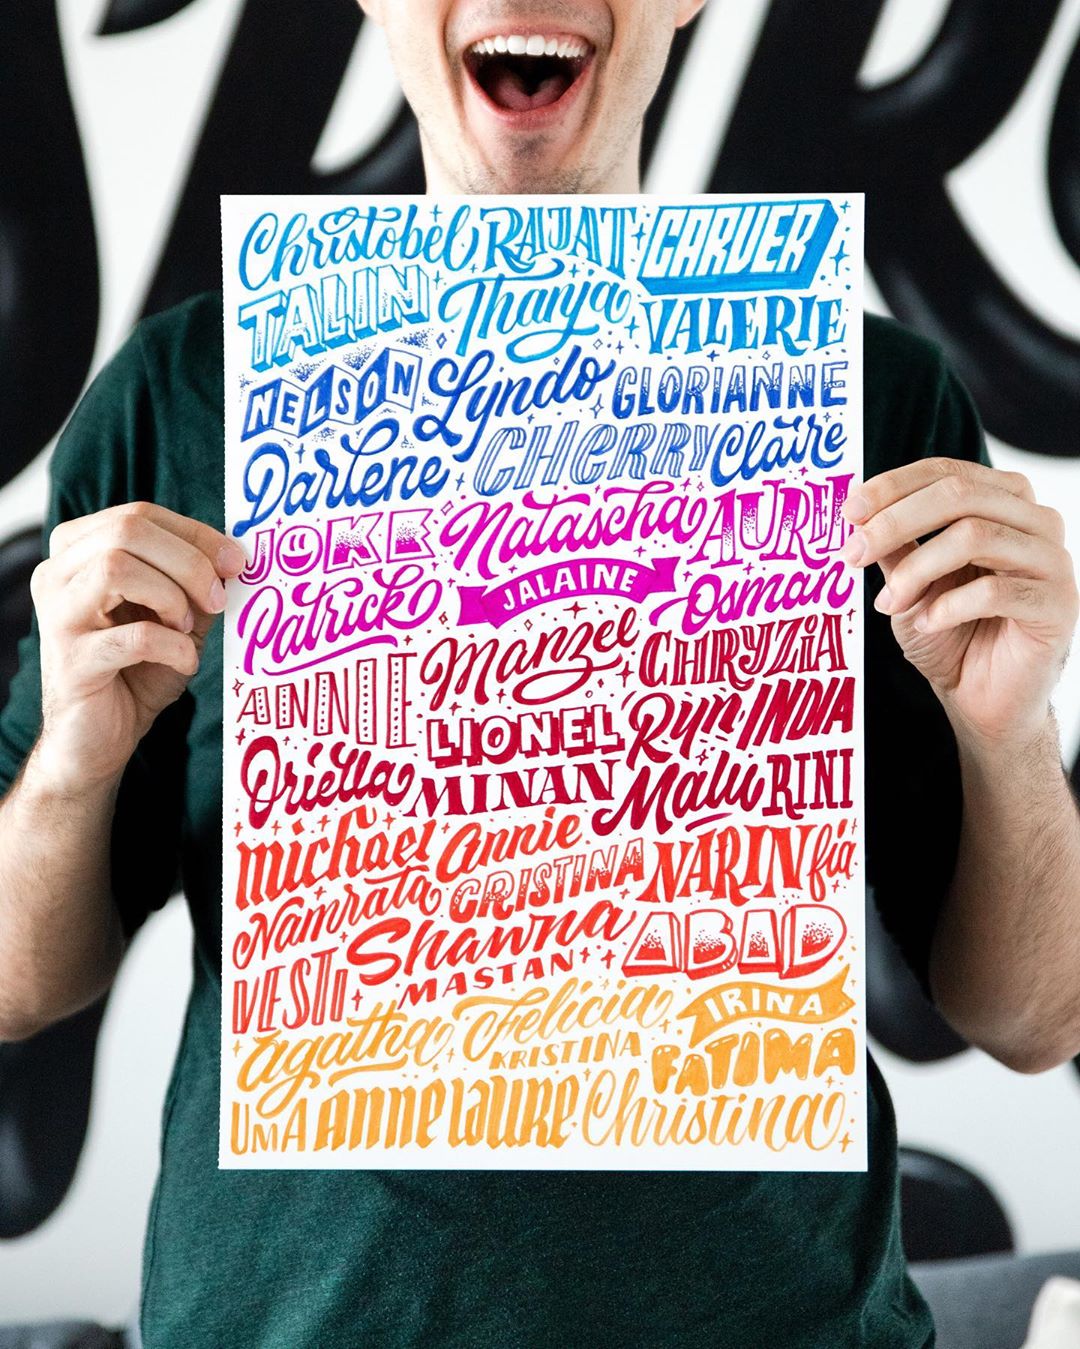 Christobel RAJAT CARVER
TALIN Thanja VALERIE
NELSON Lyndo GLORIANNE
Darlene CHERRY Claire
JOKE Natascha AUREL
Patrick JALAINE Osman
ANNIE Manzel CHRYZIA
LIONEL Ryn INDIA
Oriella MINAN Malu RINI
michael Annie NARIN fia
Namrata CRISTINA
Shawna ABAD
VESTI MASTAN
Agatha Felicia IRINA
KRISTINA FATIMA
UMA ANNE LAURE Christina